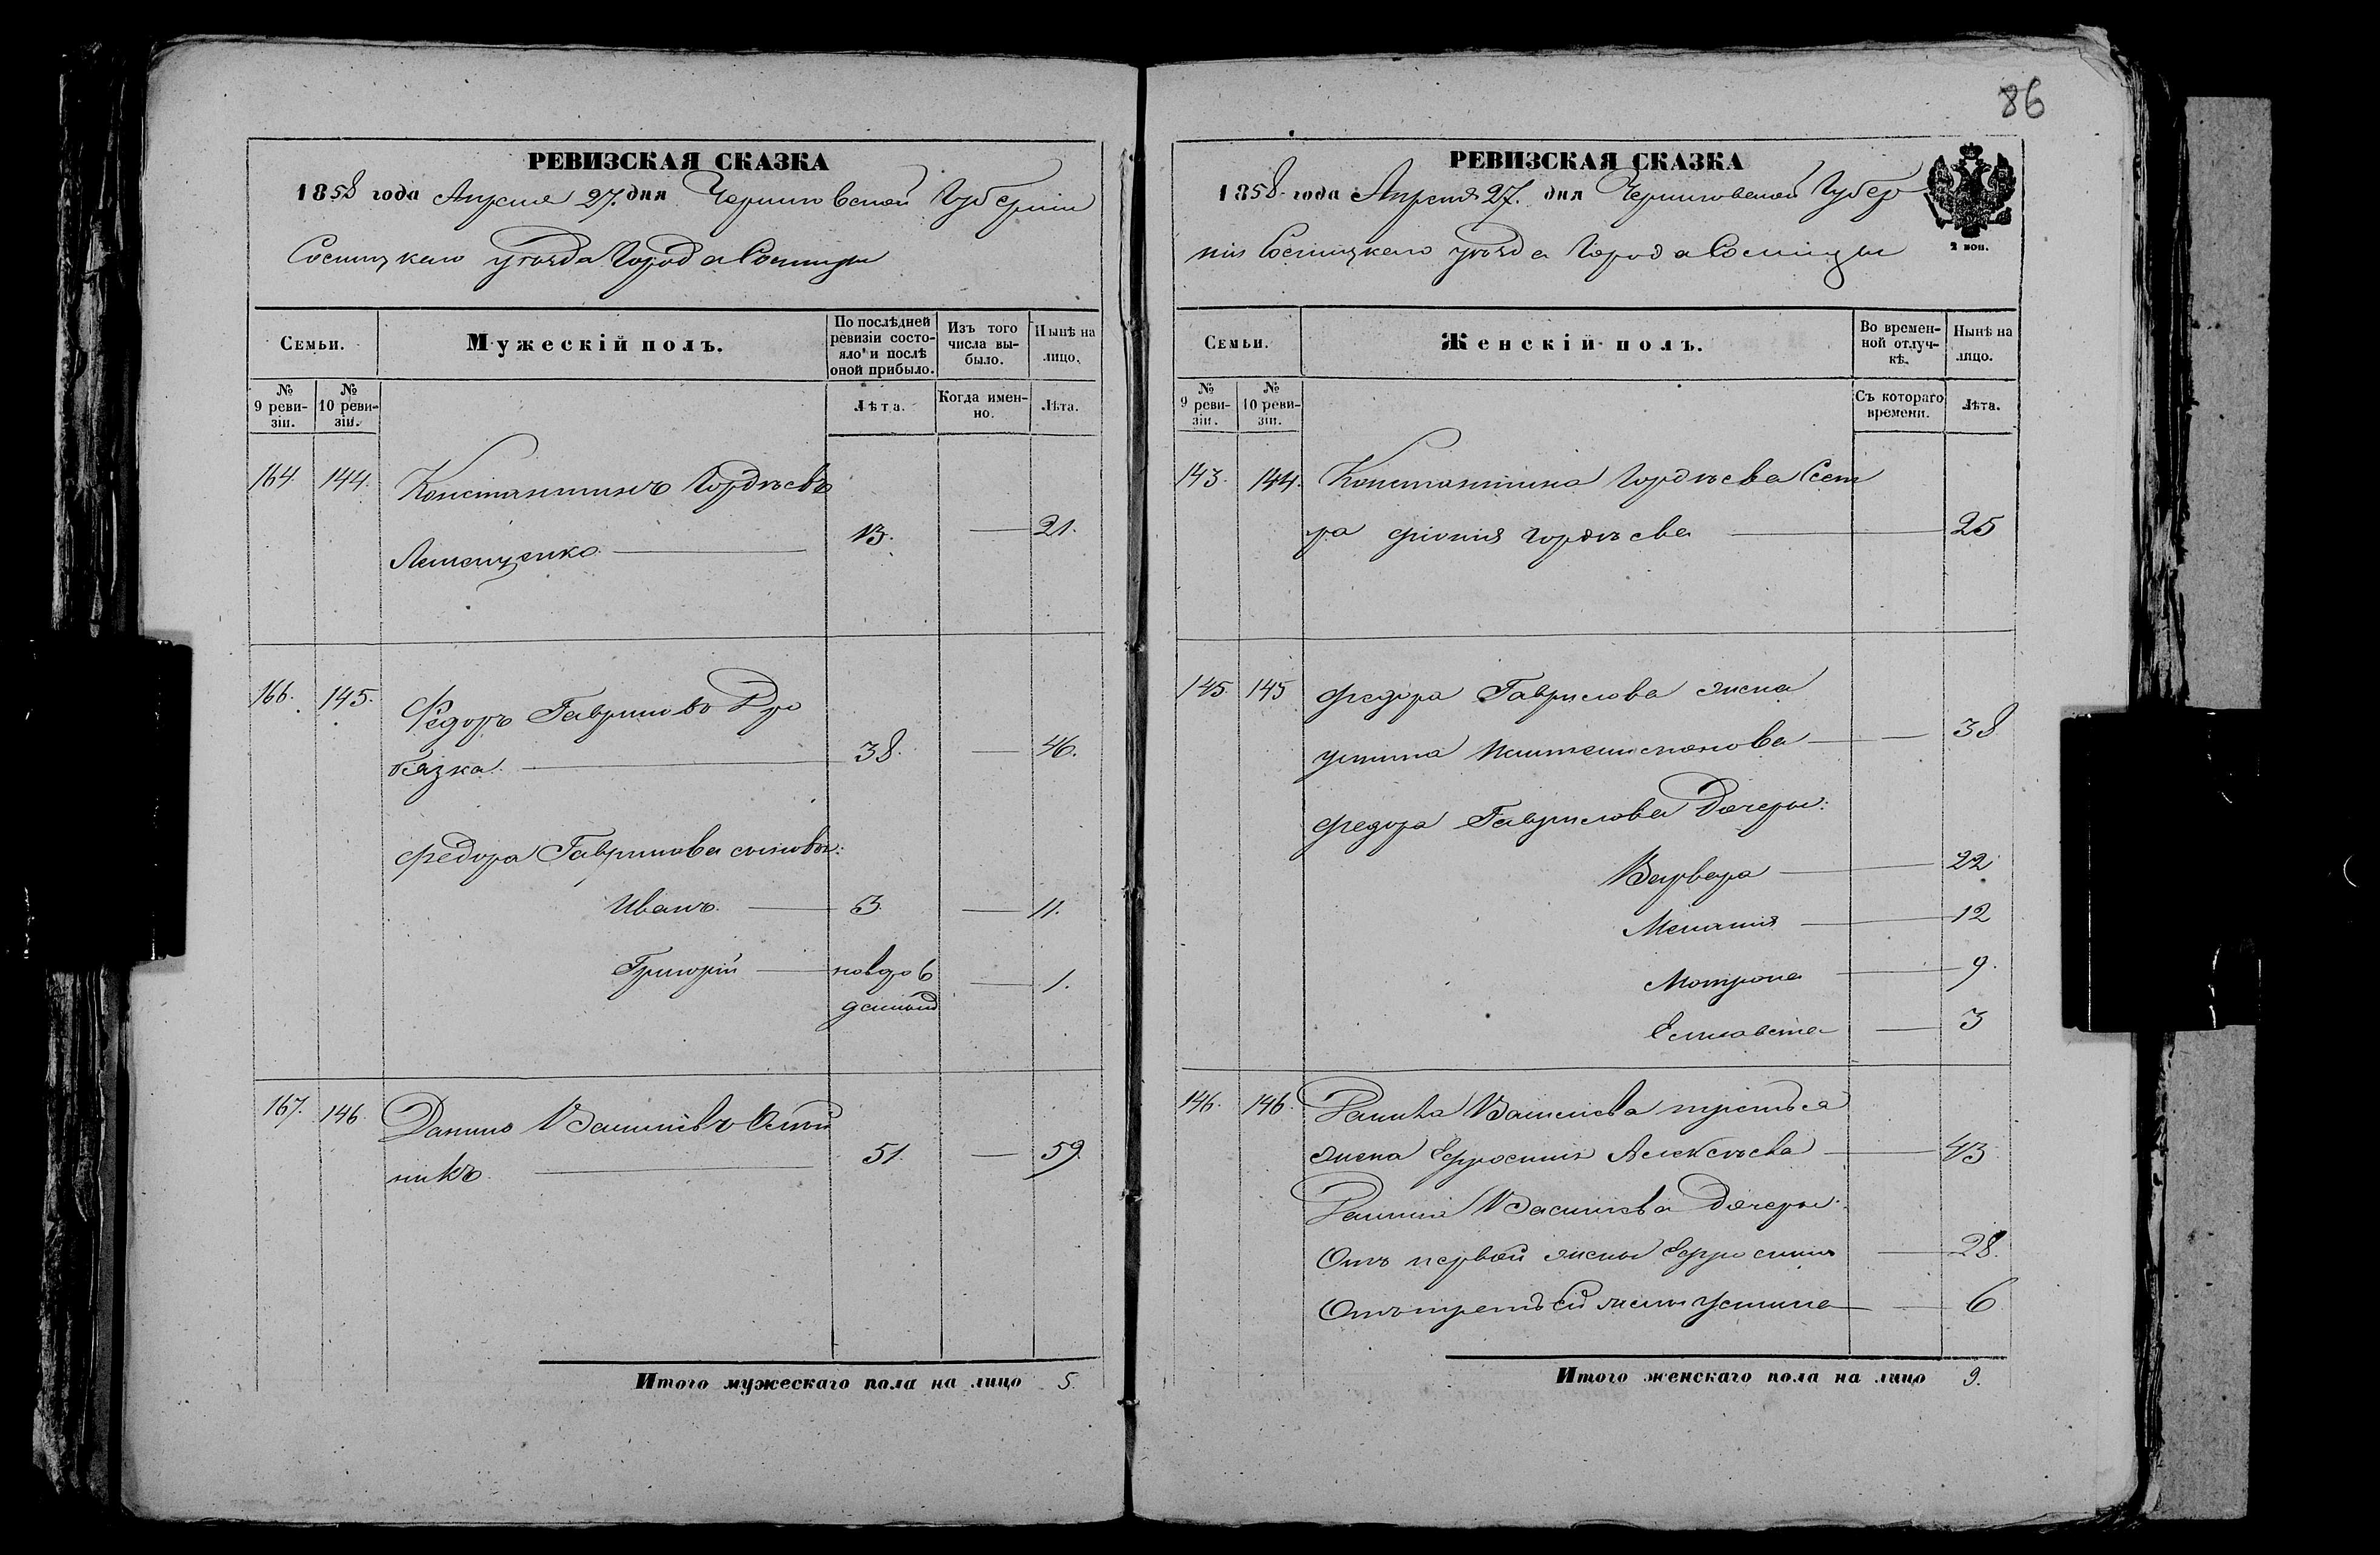 86
РЕВИЗСКАЯ СКАЗКА
1858 года Апреля 27. дня Черниговской Губерніи
Сосницкаго уѣзда Города Сосницы
Семьи.
Мужескій полъ.
По послѣдней ревизіи состояло и послѣ оной прибыло.
Изъ того числа выбыло.
Нынѣ на лицо.
№ 9 ревизіи.
№ 10 ревизіи.
Лѣта.
Когда именно.
Лѣта.
164. 144. Константинъ Гордѣевъ
13. — 21.
166. 145. Федоръ Гавриловъ
38. — 46.
Федора Гаврилова сыновья:
Иванъ. — 3 — 11.
Григорій — — 1.
167. 146. Данило Василіевъ
никъ — 51. — 59.
Итого мужескаго пола на лицо 5.
РЕВИЗСКАЯ СКАЗКА
1858 года Апреля 27. дня Черниговской Губер
ніи Сосницкаго уѣзда Города Сосницы
2 коп.
Семьи.
Женскій полъ.
Во временной отлучкѣ.
Нынѣ на лицо.
№ 9 ревизіи.
№ 10 ревизіи.
Съ котораго времени.
Лѣта.
143. 144. Константина Гордѣева Сест
ра Гордѣева — 25
145. 145 Федора Гаврилова жена
устина — 38
Федора Гаврилова Дочери:
Варвара — 22
Меланія — 12
Мотрона — 9.
Елисавета — 3
146. 146. Данила Василіева третья
жена Ефросинія Алексѣева — 43
Данила Василіева Дочери:
Отъ первой жены Ефросинія — 28.
Отъ третьей жены Устина — 6
Итого женскаго пола на лицо 9.